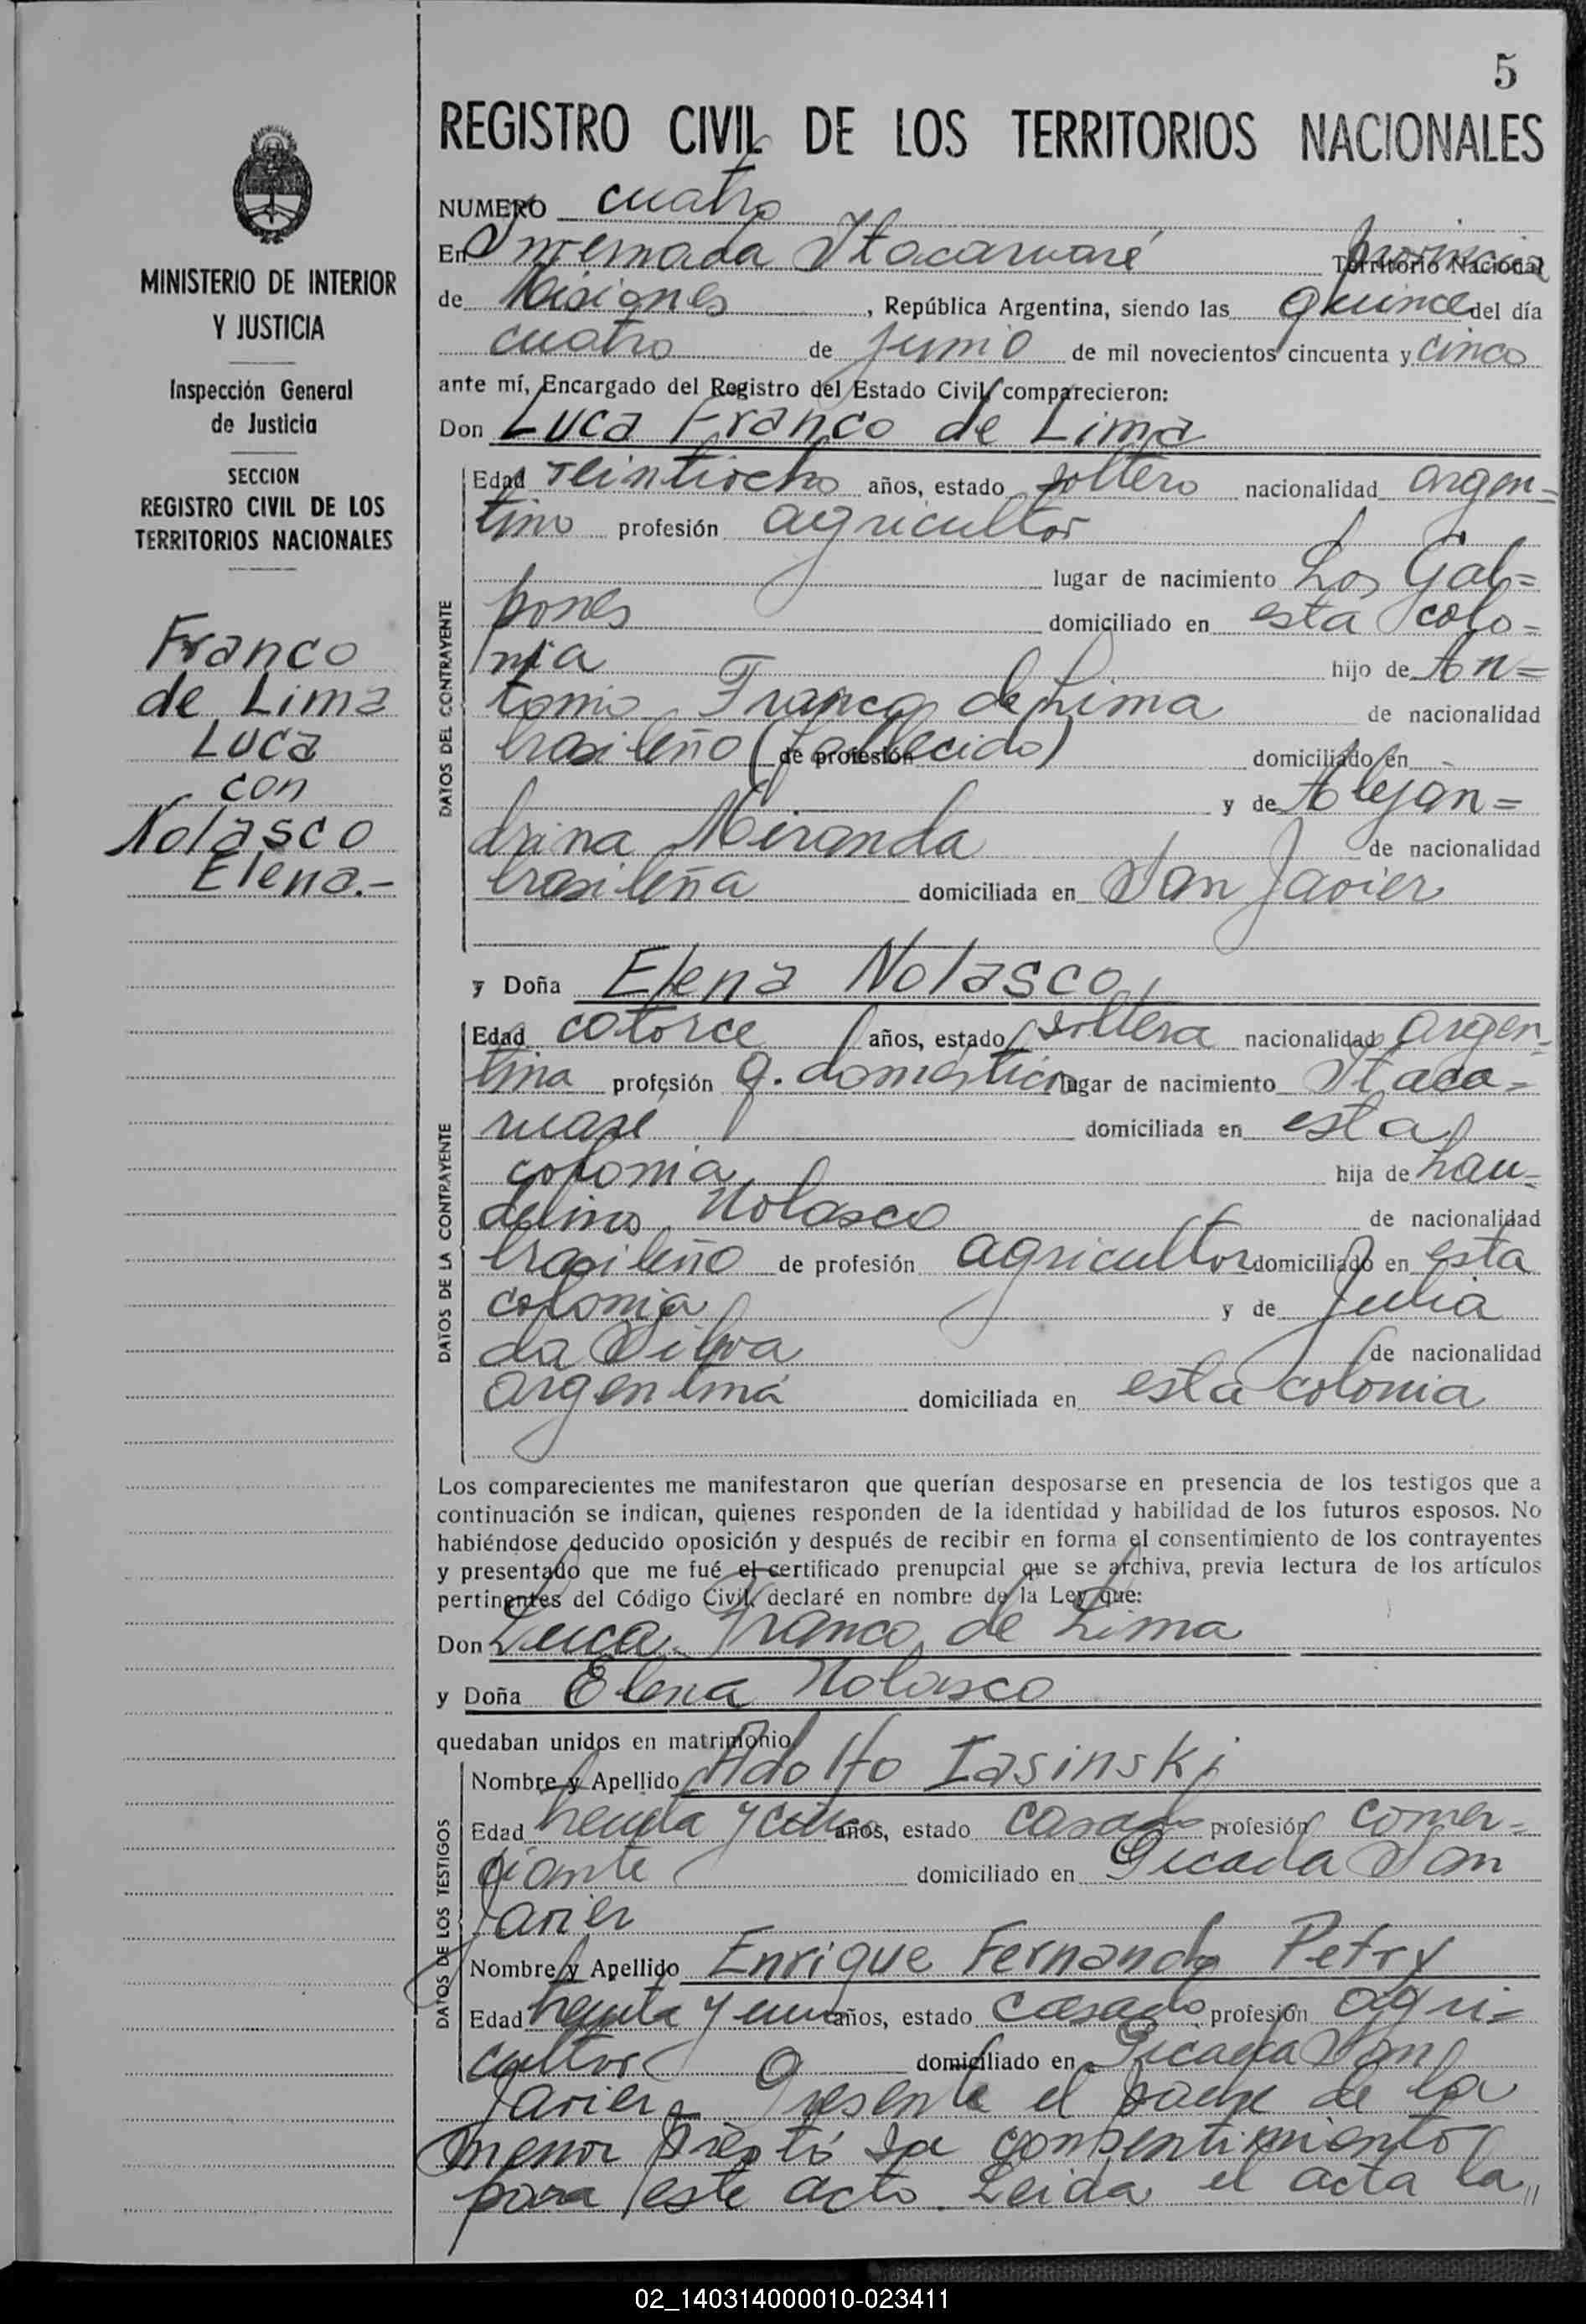 5
REGISTRO CIVIL DE LOS TERRITORIOS NACIONALES
NUMERO cuatro
En Invernada Itacaruaré provincia Territorio Nacional
de Misiones, República Argentina, siendo las quince del día
cuatro de junio de mil novecientos cincuenta y cinco
ante mí, Encargado del Registro del Estado Civil comparecieron:
Don Luca Franco de Lima
DATOS DEL CONTRAYENTE
Edad veintiocho años, estado soltero nacionalidad argen=
tino profesión agricultor
lugar de nacimiento Los Gal=
pones domiciliado en esta colo=
nia hijo de An=
tonio Franco de Lima de nacionalidad
brasileño (fallecido) de profesión domiciliado en
y de Alejan=
drina Miranda de nacionalidad
brasileña domiciliada en San Javier
y Doña Elena Nolasco
DATOS DE LA CONTRAYENTE
Edad catorce años, estado soltera nacionalidad argen=
tina profesión q. domésticos lugar de nacimiento Itaca=
ruaré domiciliada en esta
colonia hija de Lau=
delino Nolasco de nacionalidad
brasileño de profesión agricultor domiciliado en esta
colonia y de Julia
da Silva de nacionalidad
argentina domiciliada en esta colonia
Los comparecientes me manifestaron que querían desposarse en presencia de los testigos que a
continuación se indican, quienes responden de la identidad y habilidad de los futuros esposos. No
habiéndose deducido oposición y después de recibir en forma el consentimiento de los contrayentes
y presentado que me fué el certificado prenupcial que se archiva, previa lectura de los artículos
pertinentes del Código Civil, declaré en nombre de la Ley que:
Don Luca Franco de Lima
y Doña Elena Nolasco
quedaban unidos en matrimonio
DATOS DE LOS TESTIGOS
Nombre y Apellido Adolfo Iasinski
Edad treinta y cinco años, estado casado profesión comer=
ciante domiciliado en Picada San
Javier
Nombre y Apellido Enrique Fernando Petry
Edad treinta y un años, estado casado profesión agri=
cultor domiciliado en Picada San
Javier.- Presente el padre de la
menor prestó su consentimiento
para este acto. Leida el acta la,,
MINISTERIO DE INTERIOR
Y JUSTICIA
Inspección General
de Justicia
SECCION
REGISTRO CIVIL DE LOS
TERRITORIOS NACIONALES
Franco
de Lima
Luca
con
Nolasco
Elena.-
02_140314000010-023411